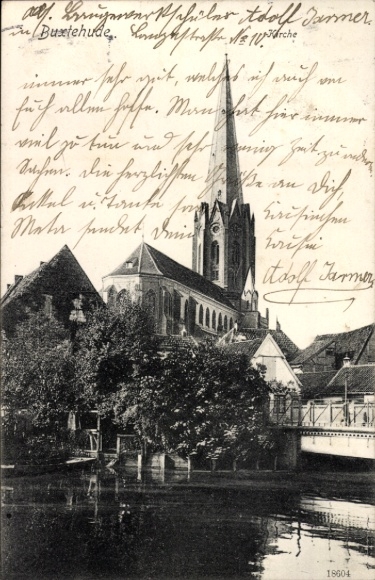 adr. Baugewerkschüler Adolf Jarmer.
in Buxtehude. Langestraße No 10. Kirche
immer sehr gut, welches ich auch von
Euch allen hoffe. Man hat hier immer
viel zu tun und sehr wenig Zeit zu andern
Sachen. die herzlichsten Grüße an Dich,
Onkel u. Tante sowie
Meta sendet Dein Cousin
Adolf Jarmer
18604